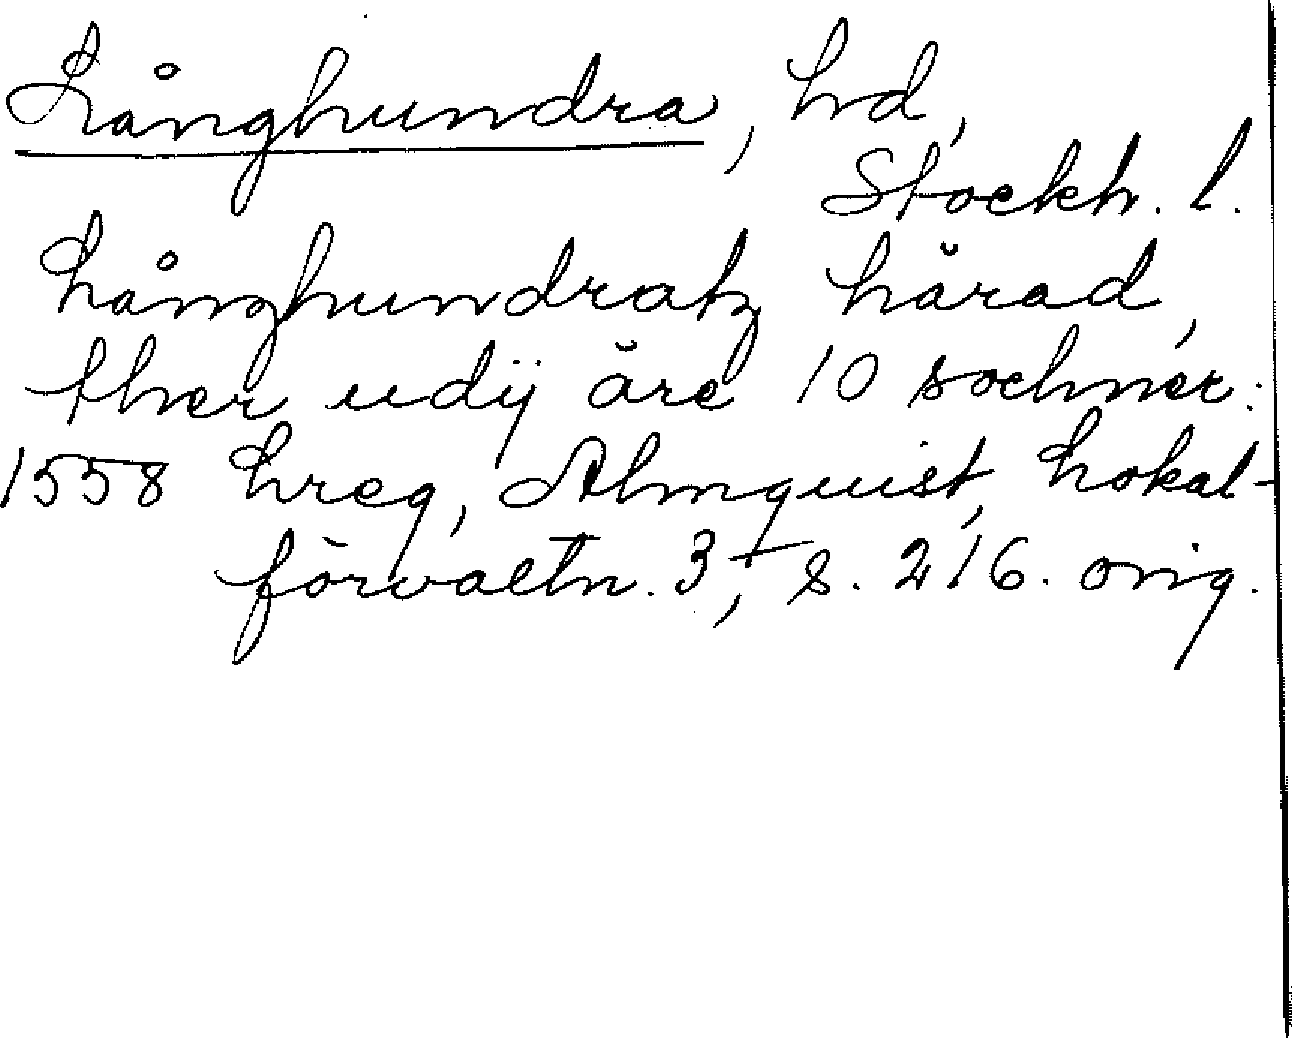 Långhundra, hd,
Stockh. l.
Långhundratz härad,
ther udÿ äre 10 sochner:
1558 Lreg, Almquist, Lokal-
förvaltn. 3, s. 216. orig.